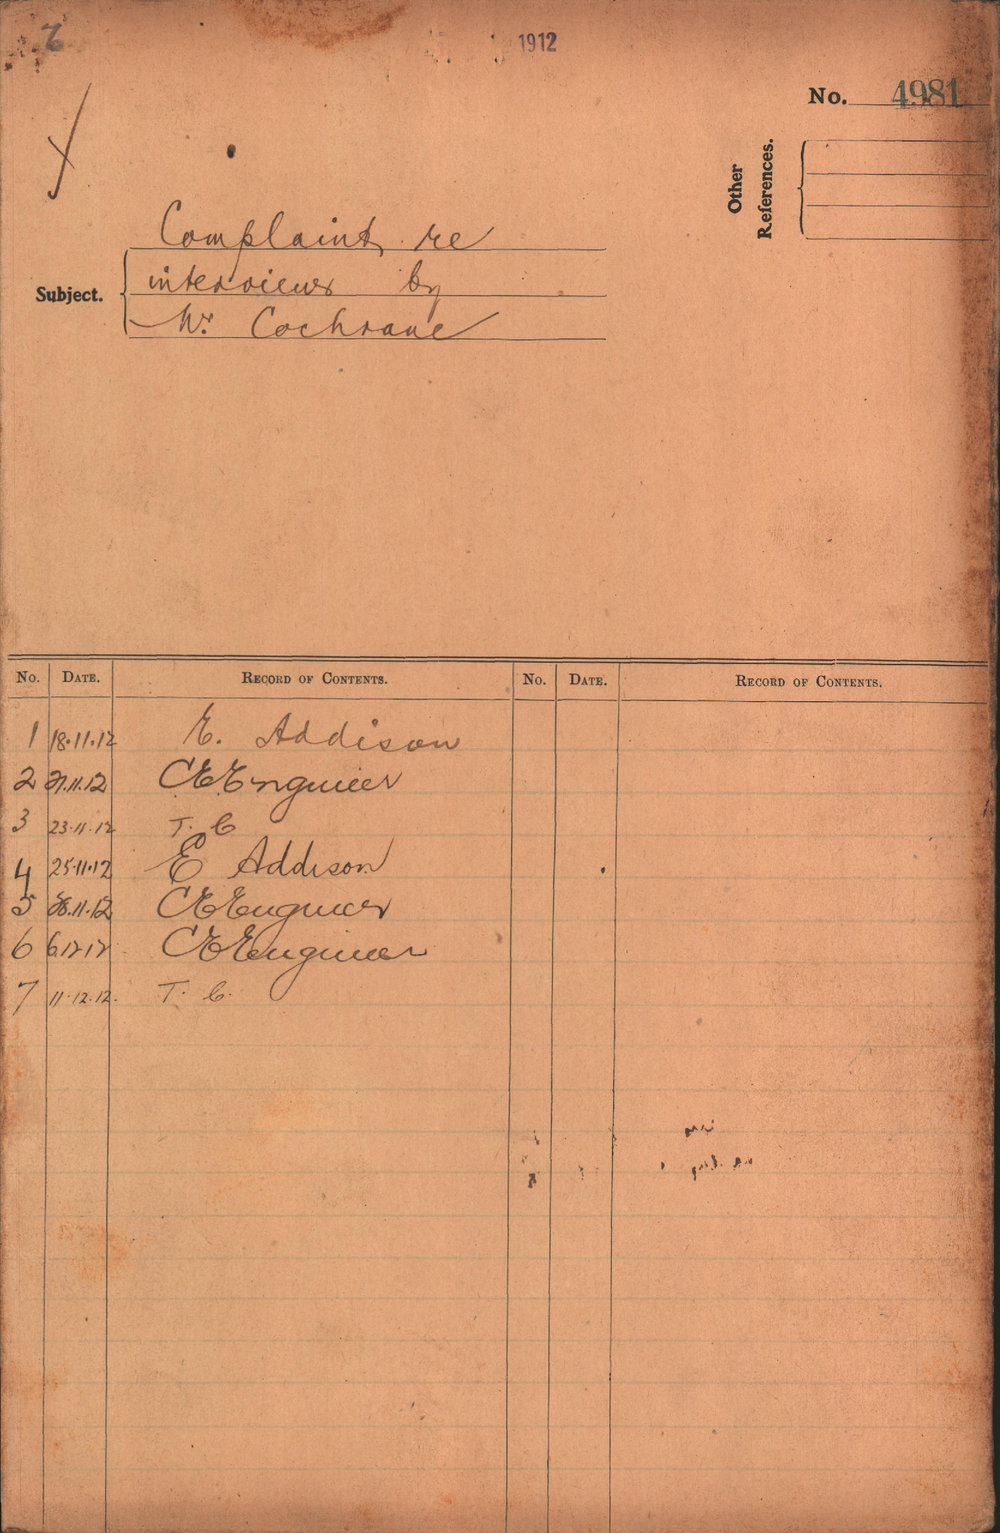 1912
No. 4981
Other
References.
Complaint re
interviews by
Subject.
Mr. Cochrane
No. DATE. RECORD OF CONTENTS. No. DATE. RECORD OF CONTENTS.
1 18.11.12 E. Addison
2 21.11.12 CEEngineer
3 23.11.12 T. C
4 25.11.12 E Addison
5 28.11.12 CEEngineer
6 6.12.12 CEEngineer
7 11.12.12. T. C.